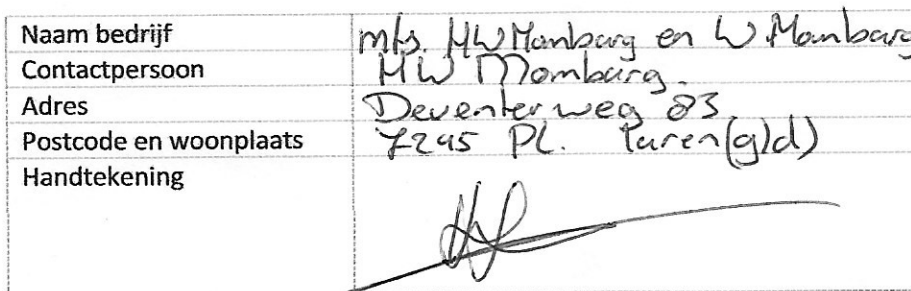 Naam bedrijf mts. HW Momburg en W. Momburg
Contactpersoon HW Momburg.
Adres Deventerweg 83
Postcode en woonplaats 7245 PL. Laren(gld)
Handtekening